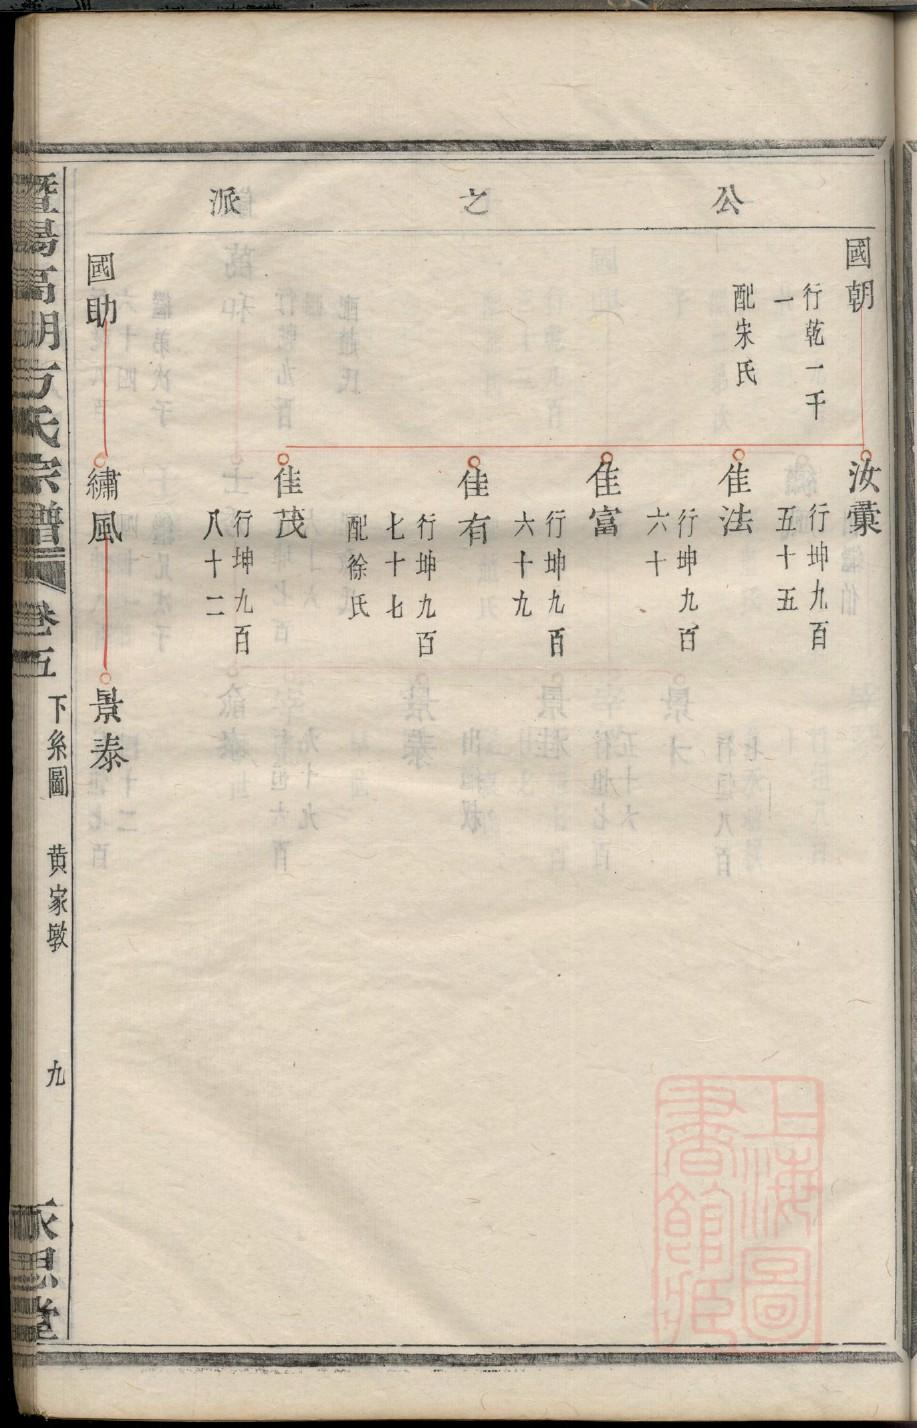 公之派
國朝
行乾一千
一
配宋氏
汝彙
行坤九百
五十五
佳法
行坤九百
六十
佳富
行坤九百
六十九
佳有
行坤九百
七十七
配徐氏
佳茂
行坤九百
八十二
國助
繡風
景泰
暨陽高湖方氏宗譜
卷五
下系圖
黄家墩
九
永思堂
上海圖
書館藏